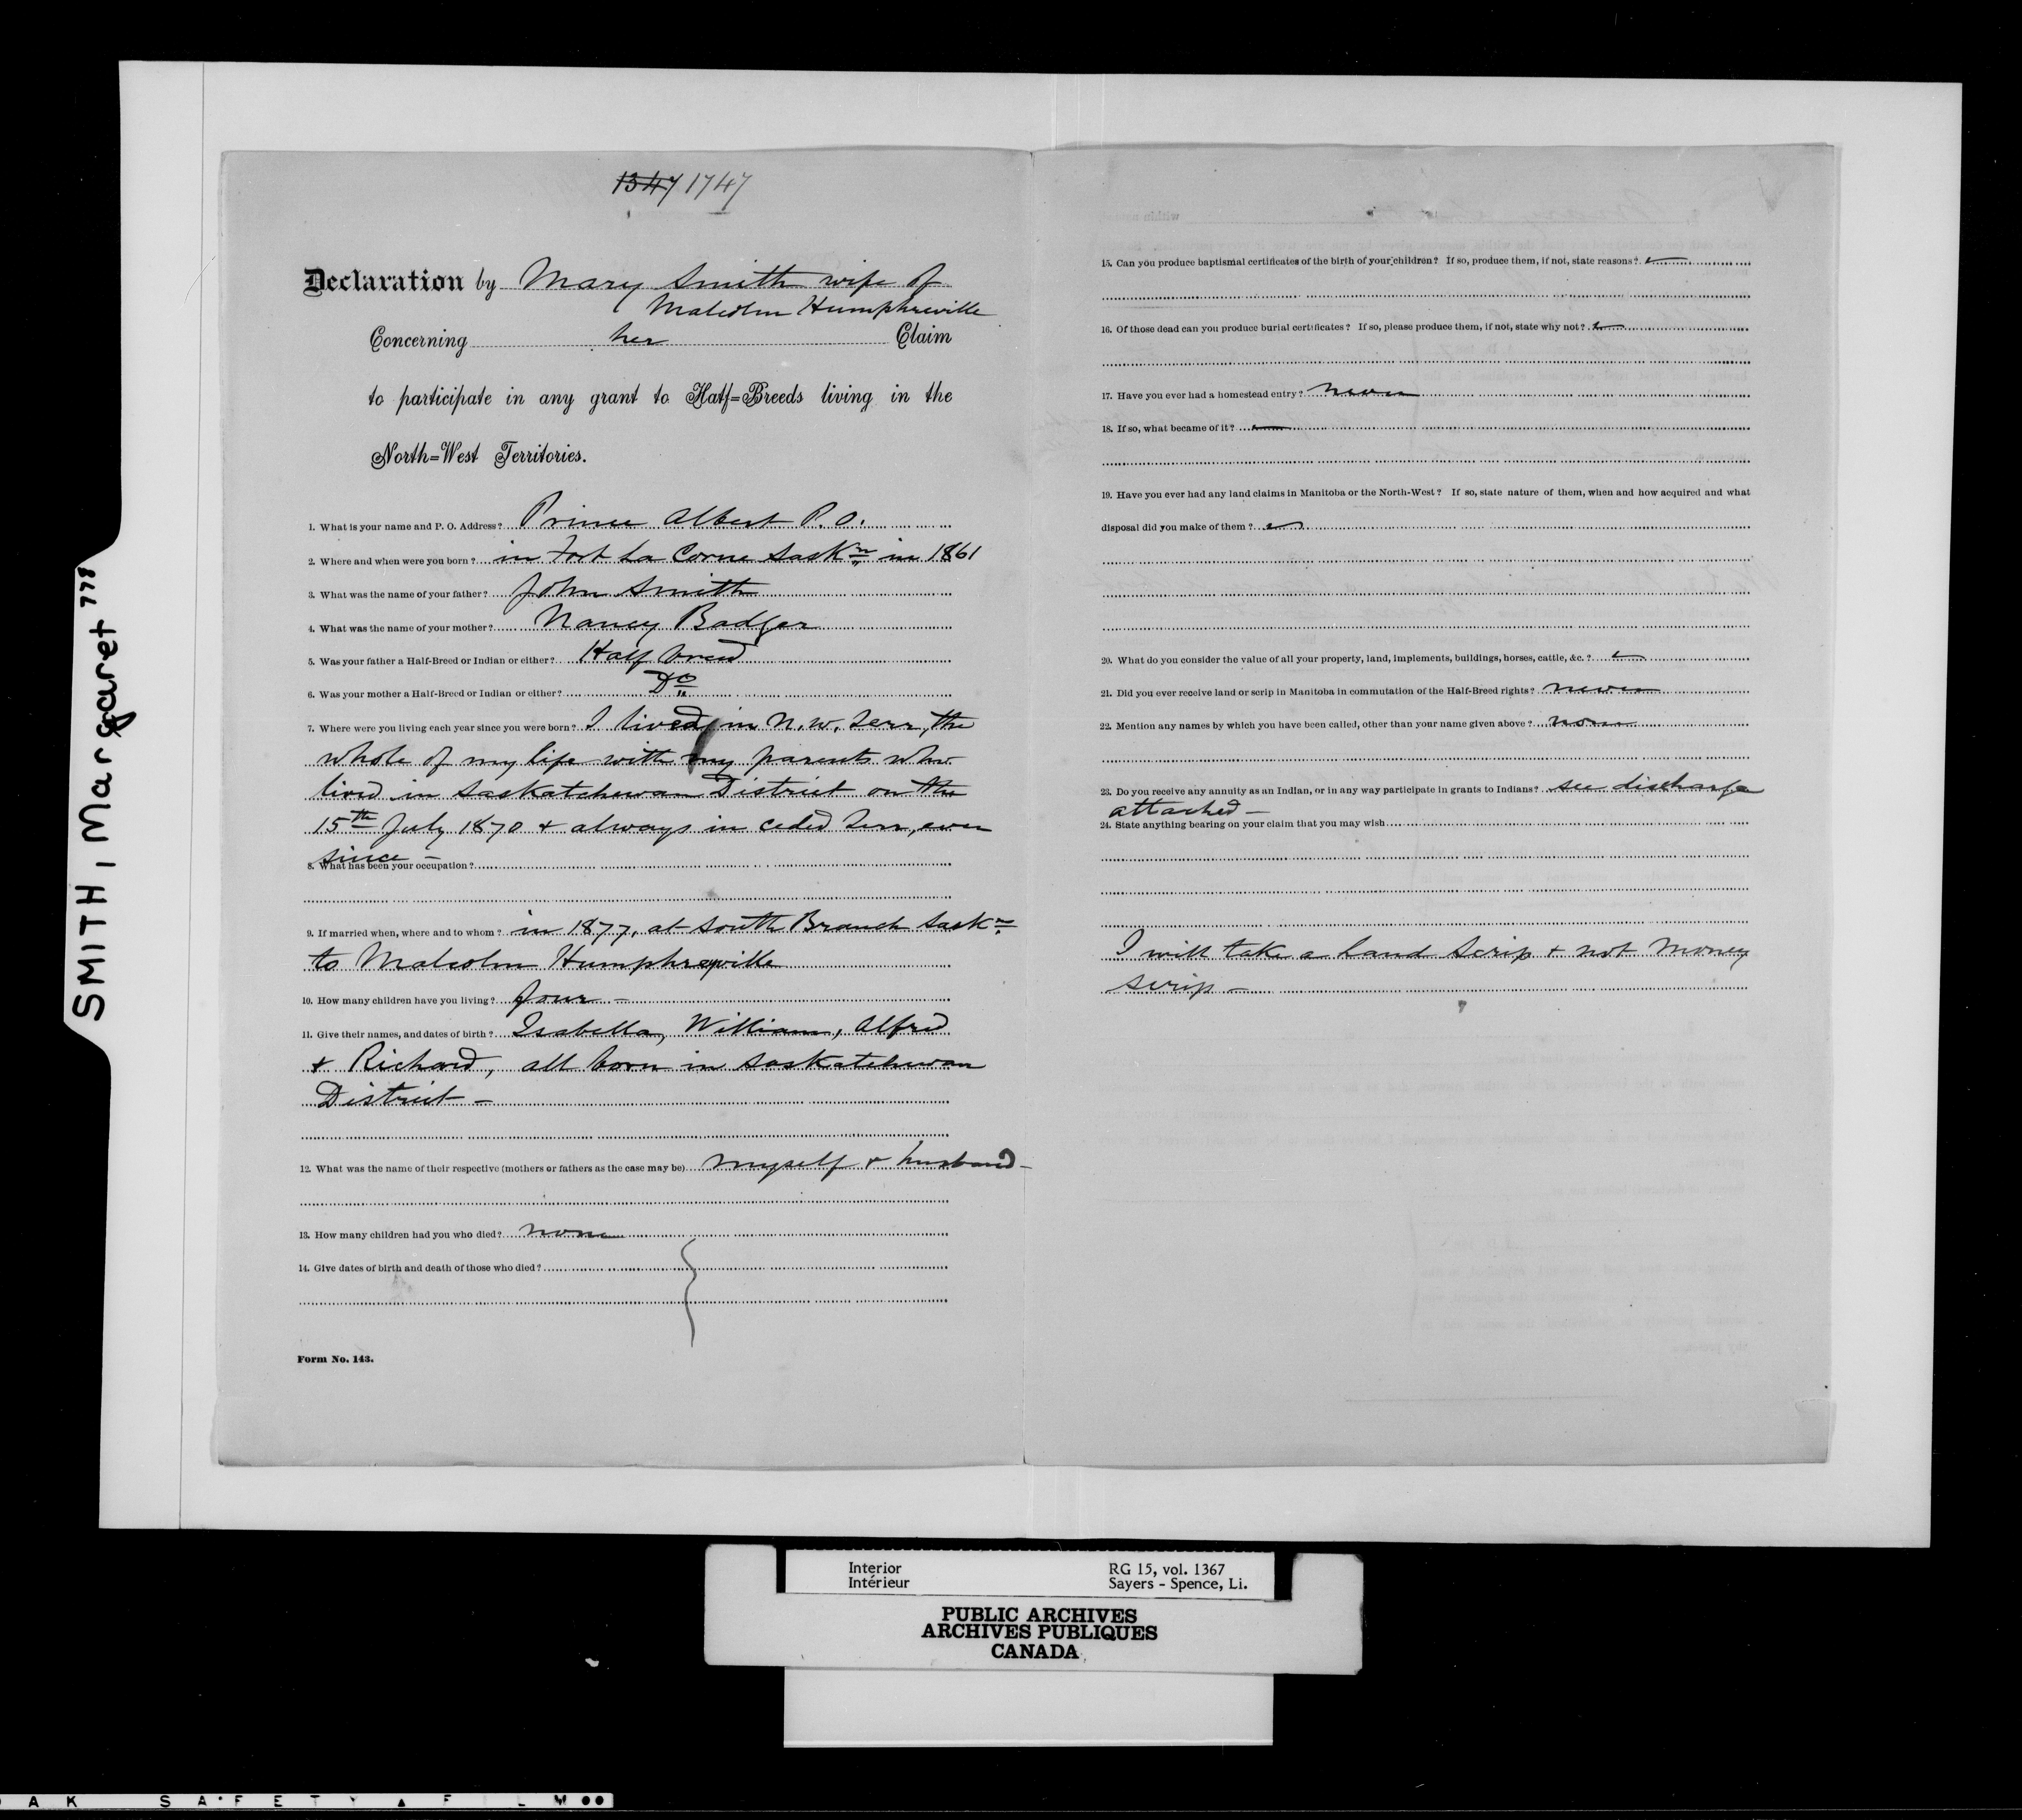 SMITH, Margaret "777
1347 1747
Declaration by Mary Smith wife of
Malcolm Humphreville
Concerning her Claim
to participate in any grant to Half=Breeds living in the
North=West Territories.
1. What is your name and P. O. Address? Prince Albert P.O.
2. Where and when were you born? in Fort La Corne Saskn in 1861
3. What was the name of your father? John Smith
4. What was the name of your mother? Nancy Badger
5. Was your father a Half-Breed or Indian or either? Half breed
6. Was your mother a Half-Breed or Indian or either? Do
7. Where were you living each year since you were born? I lived in N.W. Terr, the
whole of my life with my parents who
lived in Saskatchewan District on the
15th July 1870 & always in ceded Terr, ever
since -
8. What has been your occupation?
9. If married when, where and to whom? in 1877, at South Branch Saskn
to Malcolm Humphreyville
10. How many children have you living? four -
11. Give their names, and dates of birth? Isabella, William, Alfred
& Richard, all born in Saskatchewan
District -
12. What was the name of their respective (mothers or fathers as the case may be) myself & husband -
13. How many children had you who died? none
14. Give dates of birth and death of those who died?
Form No. 143.
15. Can you produce baptismal certificates of the birth of your children? If so, produce them, if not, state reasons?
16. Of those dead can you produce burial certificates? If so, please produce them, if not, state why not?
17. Have you ever had a homestead entry? never
18. If so, what became of it?
19. Have you ever had any land claims in Manitoba or the North-West? If so, state nature of them, when and how acquired and what
disposal did you make of them?
20. What do you consider the value of all your property, land, implements, buildings, horses, cattle, &c.?
21. Did you ever receive land or scrip in Manitoba in commutation of the Half-Breed rights? never
22. Mention any names by which you have been called, other than your name given above? none
23. Do you receive any annuity as an Indian, or in any way participate in grants to Indians? see discharge
attached -
24. State anything bearing on your claim that you may wish
I will take a Land Scrip & not Money
Scrip -
Interior RG 15, vol. 1367
Intérieur Sayers - Spence, Li.
PUBLIC ARCHIVES
ARCHIVES PUBLIQUES
CANADA
A K SAFETY FILM